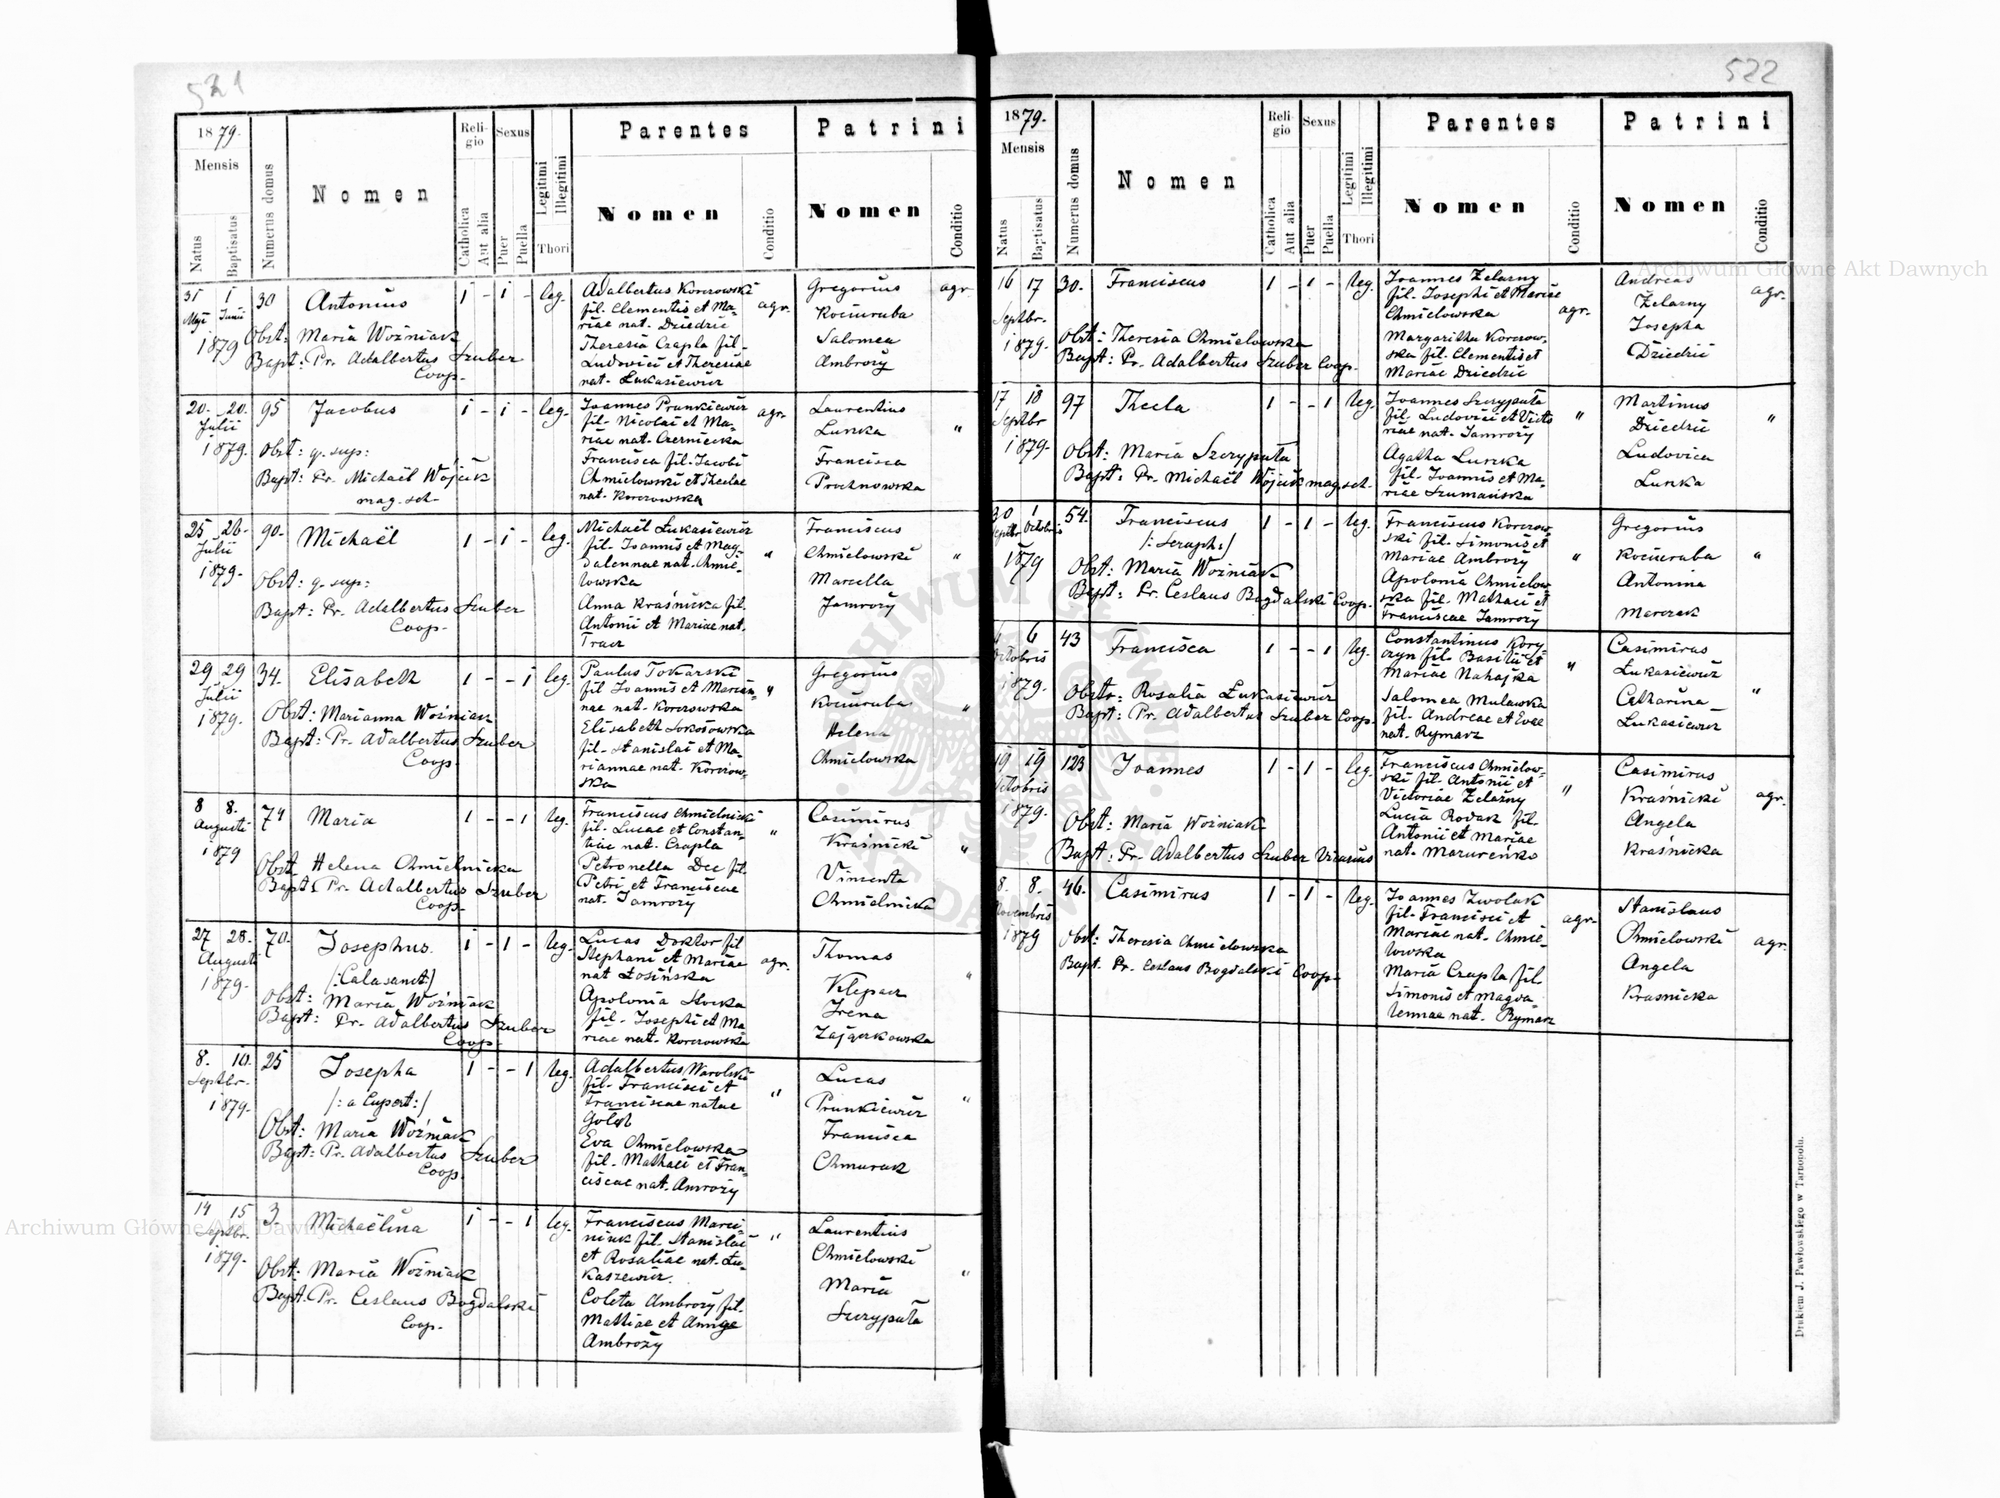 521
1879.
Mensis
Natus
Baptisatus
Numerus domus
Nomen
Religio
Catholica
Aut alia
Sexus
Puer
Puella
Legitimi
Illegitimi
Thori
Parentes
Nomen
Conditio
Patrini
Nomen
Conditio
31 1 30 Antonius 1 - 1 - leg.
Maji Junii
1879
Obst: Maria Woźniak
Bapt: Pr. Adalbertus Szuber
Coop.
Adalbertus Korczowski
fil. Clementis et Ma-
riae nat. Dziedzic
Theresia Czapla fil.
Ludovici et Theresiae
nat. Łukasiewicz
agr.
Gregorius
Kociuruba
Salomea
Ambroży
agr.
20. 20. 95 Jacobus 1 - 1 - leg.
Julii
1879.
Obst: q. sup:
Bapt: Pr. Michaël Wójcik
mag. sch.
Joannes Prunkiewicz
fil. Nicolai et Ma-
riae nat. Czernicka
Francisca fil. Jacobi
Chmielowski et Theclae
nat. Korczowska
agr.
Laurentius
Luszka
Francisca
Prochnowska
"
25 26. 90. Michaël 1 - 1 - leg.
Julii
1879.
Obst: q. sup:
Bapt: Pr. Adalbertus Szuber
Coop.
Michaël Łukasiewicz
fil. Joannis et Mag-
dalennae nat. Chmie-
lowska
Anna Kraśnicka fil.
Antonii et Mariae nat.
Tracz
"
Franciscus
Chmielowski
Marcella
Jamroży
"
29 29 34. Elisabeth 1 - - 1 leg.
Julii
1879.
Obst: Marianna Woźniak
Bapt: Pr. Adalbertus Szuber
Coop
Paulus Tokarski
fil Joannis et Marian-
nae nat. Korczowska
Elisabeth Sokołowska
fil. Stanislai et Ma-
riannae nat. Korczow-
ska
"
Gregorius
Kociuruba
Helena
Chmielowska
"
8 8. 74 Maria 1 - - 1 leg.
Augusti
1879
Obst Helena Chmielnicka
Bapt: Pr. Adalbertus Szuber
Coop.
Franciscus Chmielnicki
fil. Lucae et Constan-
tiae nat. Czapla
Petronella Dec fil.
Petri et Franciscae
nat. Jamroży
"
Casimirus
Kraśnicki
Vincenta
Chmielnicka
"
27 28. 70. Josephus. 1 - 1 - leg.
Augusti
1879.
/:Calasanct/
Obst: Maria Woźniak
Bapt: Pr. Adalbertus Szuber
Coop.
Lucas Doktor fil
Stephani et Mariae
nat Łosińska
Apolonia
fil. Josephi et Ma-
riae nat. Korczowska
agr.
Thomas
Klepacz
Irena
Zajączkowska
"
8. 10. 25 Josepha 1 - - 1 leg.
Septbr.
1879.
/:a Cupert:/
Obst: Maria Woźniak
Bapt: Pr. Adalbertus Szuber
Coop.
Adalbertus Warolski
fil. Francisci et
Franciscae natae
Eva Chmielowska
fil. Mathaei et Fran-
ciscae nat. Amroży
"
Lucas
Prunkiewicz
Francisca
Chmurak
"
14 15 3. Michaëlina 1 - - 1 leg.
Septbr.
1879.
Obst: Maria Woźniak
Bapt. Pr. Ceslaus Bogdalski
Coop.
Franciscus Marci-
niuk fil. Stanislai
et Rosaliae nat. Łu-
kaszewicz.
Coleta Ambroży fil.
Mathiae et Annae
Ambroży
"
Laurentius
Chmielowski
Maria
Szczyputa
"
522
1879.
Mensis
Natus
Baptisatus
Numerus domus
Nomen
Religio
Catholica
Aut alia
Sexus
Puer
Puella
Legitimi
Illegitimi
Thori
Parentes
Nomen
Conditio
Patrini
Nomen
Conditio
16 17 30. Franciscus 1 - 1 - leg.
Septbr.
1879.
Obst: Theresia Chmielowska
Bapt: Pr. Adalbertus Szuber Coop.
Joannes Żelazny
fil. Josephi et Mariae
Chmielowska
Margaritha Korczow-
ska fil. Clementis et
Mariae Dziedzic
agr.
Andreas
Żelazny
Josepha
Dziedzic
agr.
17 18 97 Thecla 1 - - 1 leg.
Septbr
1879.
Obst: Maria Szczyputa
Bapt: Pr. Michaël Wójcik mag. sch.
Joannes Szczyputa
fil. Ludovici et Victo
riae nat. Jamroży
Agatha Luszka
fil. Joannis et Ma-
riae Szumańska
"
Martinus
Dziedzic
Ludovica
Luszka
"
30 1 54. Franciscus 1 - 1 - leg.
Septbr Octobris
1879
/:Seraph:/
Obst: Maria Woźniak
Bapt: Pr. Ceslaus Bogdalski Coop.
Franciscus Korczow-
ski fil. Simonis et
Mariae Ambroży
Apolonia Chmielow-
ska fil. Mathaei et
Franciscae Jamroży
"
Gregorius
Kociuruba
Antonina
Marczak
"
6 43 Francisca 1 - - 1 leg.
Octobris
1879.
Obstr: Rosalia Łukasiewicz
Bapt: Pr. Adalbertus Szuber Coop.
Constantinus Kory-
czyn fil. Basilii et
Mariae Nahajka
Salomea Mulawka
fil. Andreae et Evae
nat. Rymarz
"
Casimirus
Łukasiewicz
Catharina
Lukasiewicz
"
19 19 123 Joannes 1 - 1 - leg.
Octobris
1879.
Obst: Maria Woźniak
Bapt: Pr. Adalbertus Szuber Vicarius
Franciscus Chmielow-
ski fil. Antonii et
Victoriae Żelazny
Lucia Rodak fil.
Antonii et Mariae
nat. Mazureńko
"
Casimirus
Kraśnicki
Angela
Kraśnicka
agr.
8. 8. 46. Casimirus 1 - 1 - leg.
Novembris
1879
Obst: Theresia Chmielowska
Bapt. Pr. Ceslaus Bogdalski Coop.
Joannes Zwolak
fil. Francisci et
Mariae nat. Chmie-
lowska
Maria Czapla fil.
Simonis et Magda-
lennae nat. Rymarz
agr.
Stanislaus
Chmielowski
Angela
Krasnicka
agr.
Drukiem J. Pawłowskiego w Tarnopolu.
Archiwum Główne Akt Dawnych
Archiwum Główne Akt Dawnych
ARCHIWUM GŁÓWNE AKT DAWNYCH